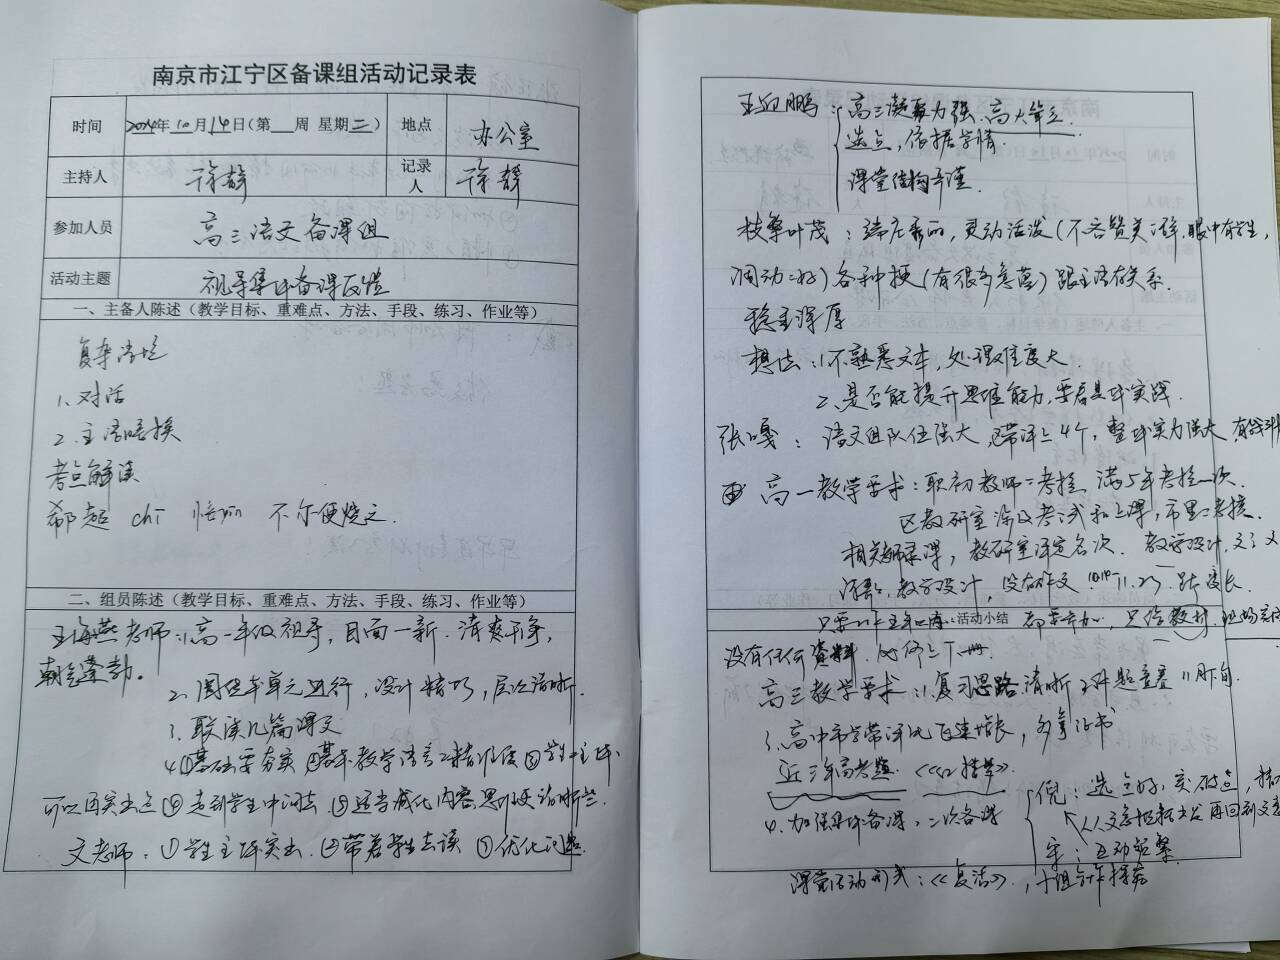 南京市江宁区备课组活动记录表
时间 2024年10月14日(第 周 星期二) 地点 办公室
主持人 徐静 记录人 徐静
参加人员 高三语文备课组
活动主题 视导集体备课反馈
一、主备人陈述（教学目标、重难点、方法、手段、练习、作业等）
复杂
1、对话
2、主语暗换
考点解读
郗超 chī 愔yīn 不尔便烧之.
二、组员陈述（教学目标、重难点、方法、手段、练习、作业等）
王海燕老师:1、高一年级视导，目面一新.清爽干净，
朝气蓬勃。
2、围绕本单元进行，设计精巧，层次清晰.
3、联读几篇课文
4、①基础要夯实 ②基本教学语言 精准度 ③学生主体
可以再突出点 ④走到学生中间去 ⑤适当减化内容,思路更清晰些
文老师：①学生主体突出 ②带着学生去读 ③优化问题
高三凝聚力强.高大
选点，依据学情.
课堂结构严谨.
枝繁叶茂：端庄秀丽，灵动活泼(不吝赞美之辞,眼中有学生,
调动好)各种梗(有很多意蕴)跟主语有关系.
稳重深厚
想法:1、不熟悉文本，处理难度大
2、是否能提升思维能力，要看具体实践.
张嘎：语文组队伍强大，带评 4个，整体实力强大
高一教学要求：职初教师 考核 满5年考核一次.
区教研室 考试和上课，市里 考核.
相关 录课，教研室评定名次.教学设计
教学设计，没有作文 11.25
活动小结 都要参加，只给教材
没有任何资料.必修上下册.
高三教学要求:1、复习思路清晰 2、 题竞赛 11月旬.
3、高中市学带评比 飞速增长，多拿证书
近三年高考题.
4、加强集体备课，二次备课
倪：选点好，突破点
再回到文意
互动频繁.
课堂活动形式:《复活》，小组合作探究